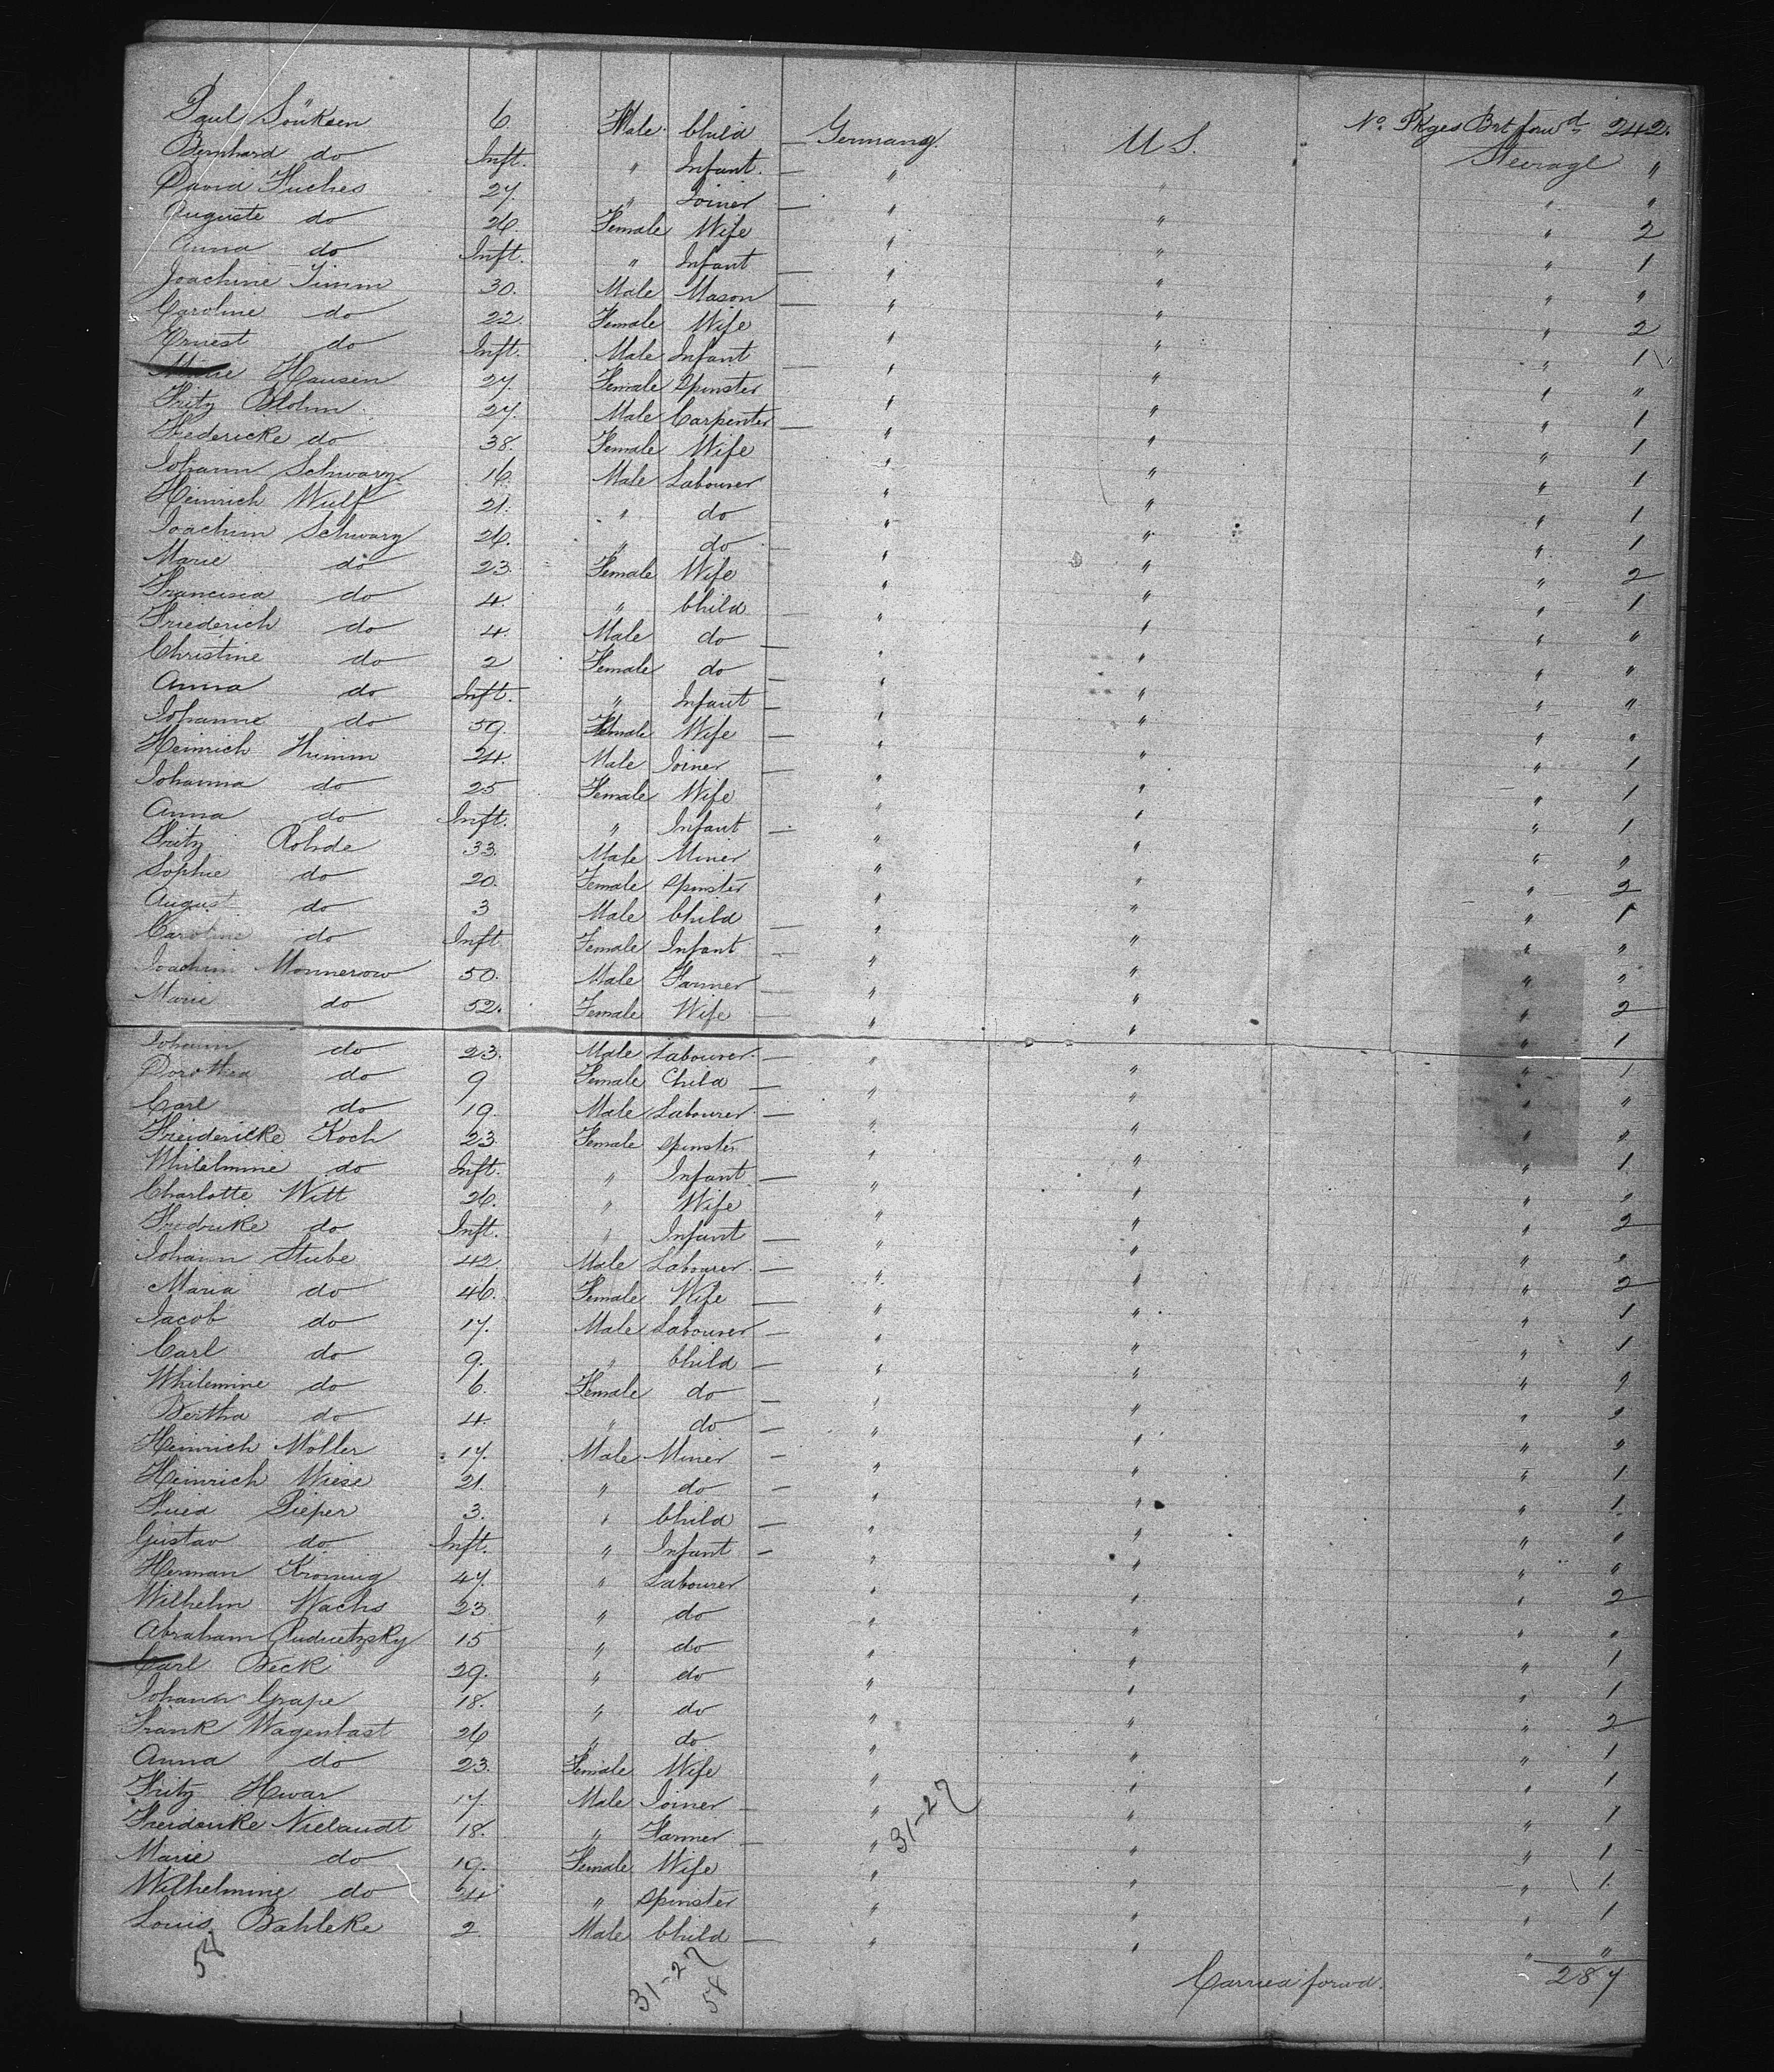 No. Pkges Brt forwd 242
Paul Sönksen 6 Male Child — Germany U S. Steerage "
Bernhard do Inft. " Infant. — " " " "
David Fuches 27. " Joiner — " " " 2
Auguste do 26. Female Wife " " " 1
Anna do Inft. " Infant — " " " "
Joachine Timm 30. Male Mason — " " " 2
Caroline do 22. Female Wife " " " 1
Ernest do Inft. Male Infant — " " " "
Marie Hansen 27. Female Spinster " " " 1
Fritz Blohm 27. Male Carpenter — " " " 1
Fredericke do 38. Female Wife " " " 1
Johann Schwarz 16. Male Labourer " " " 1
Heinrich Wulf 21. " do — " " " 1
Joachim Schwarz 26. " do — " " " 2
Marie do 23. Female Wife " " " 1
Francisca do 4. " Child — " " " "
Friederich do 4. Male do — " " " "
Christine do 2 Female do — " " " "
Anna do Inft. " Infant — " " " "
Johanne do 59. Female Wife — " " " 1
Heinrich Thimm 24. Male Joiner — " " " 1
Johanna do 25 Female Wife " " " 1
Anna do Inft. " Infant — " " " "
Fritz Rohde 33. Male Miner " " " 2
Sophie do 20. Female Spinster " " " 1
August do 3 Male Child — " " " "
Caroline do Inft Female Infant — " " " "
Joachim Monnerow 50. Male Farmer — " " " 2
Marie do 52. Female Wife — " " " 1
Johann do 23. Male Labourer. — " " " 1
Dorothea do 9 Female Child — " " " "
Carl do 19. Male Labourer. — " " " "
Freidericke Koch 23 Female Spinster " " " 1
Whilelmine do Inft. " Infant. — " " " "
Charlotte Witt 26. " Wife " " " 2
Fredricke do Inft. " Infant — " " " "
Johann Stube 42 Male Labourer. — " " " 2
Maria do 46. Female Wife — " " " 1
Jacob do 17. Male Labourer — " " " 1
Carl do 9. " Child — " " " "
Whilemine do 6. Female do — " " " "
Bertha do 4. " do — " " " "
Heinrich Möller 17. Male Miner — " " " 1
Heinrich Wiese 21. " do — " " " 1
Fried Pieper 3. " Child — " " " "
Gustav do Inft. " Infant — " " " "
Herman Kröning 47. " Labourer " " " 2
Wilhelm Wachs 23 " do " " " "
Abraham 15 " do " " " 1
Carl Beck 29. " do " " " 1
Johann Grape 18. " do " " " 2
Frank Wagenbast 26 " do " " " 1
Anna do 23. Female Wife " " " 1
Fritz Hwar 17. Male Joiner — " " " 1
Freidericke Nielandt 18. " Farmer — " 31-27 " " 1
Marie do 19. Female Wife " " " 1
Wilhelmine do 24 " Spinster " " " 1
Louis Bahleke 2. Male Child — " " " "
58 31-27 58 Carried forwd. 287